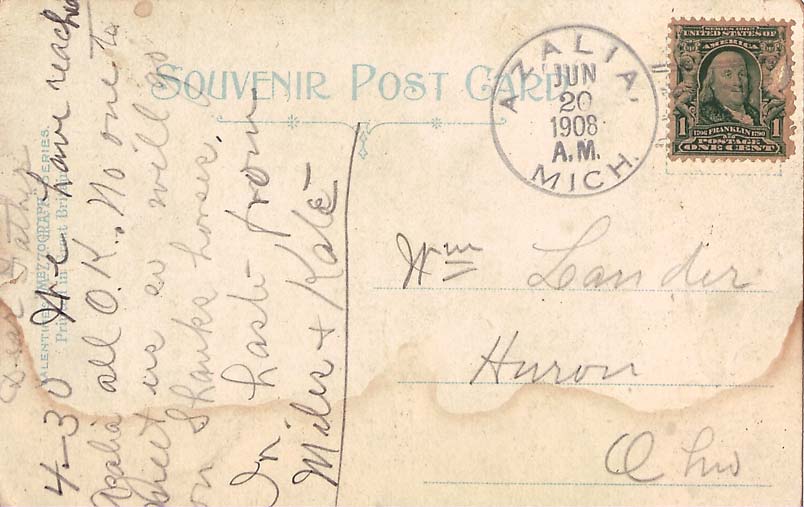 SOUVENIR POST CARD
AZALIA.
JUN
20
1908
A.M.
MICH.
SERIES 1902
UNITED STATES OF
AMERICA
1 1706 FRANKLIN 1790 1
POSTAGE
ONE CENT
Wm Lander
Huron
Ohio
Dear Father
4-30 We have reached
Azalia all O.K. No one to
meet us so will go
on Shanks horses,
In haste from
Miles & Kate
VALENTINE'S "MEZZOGRAPH" SERIES.
Printed in Great Britain